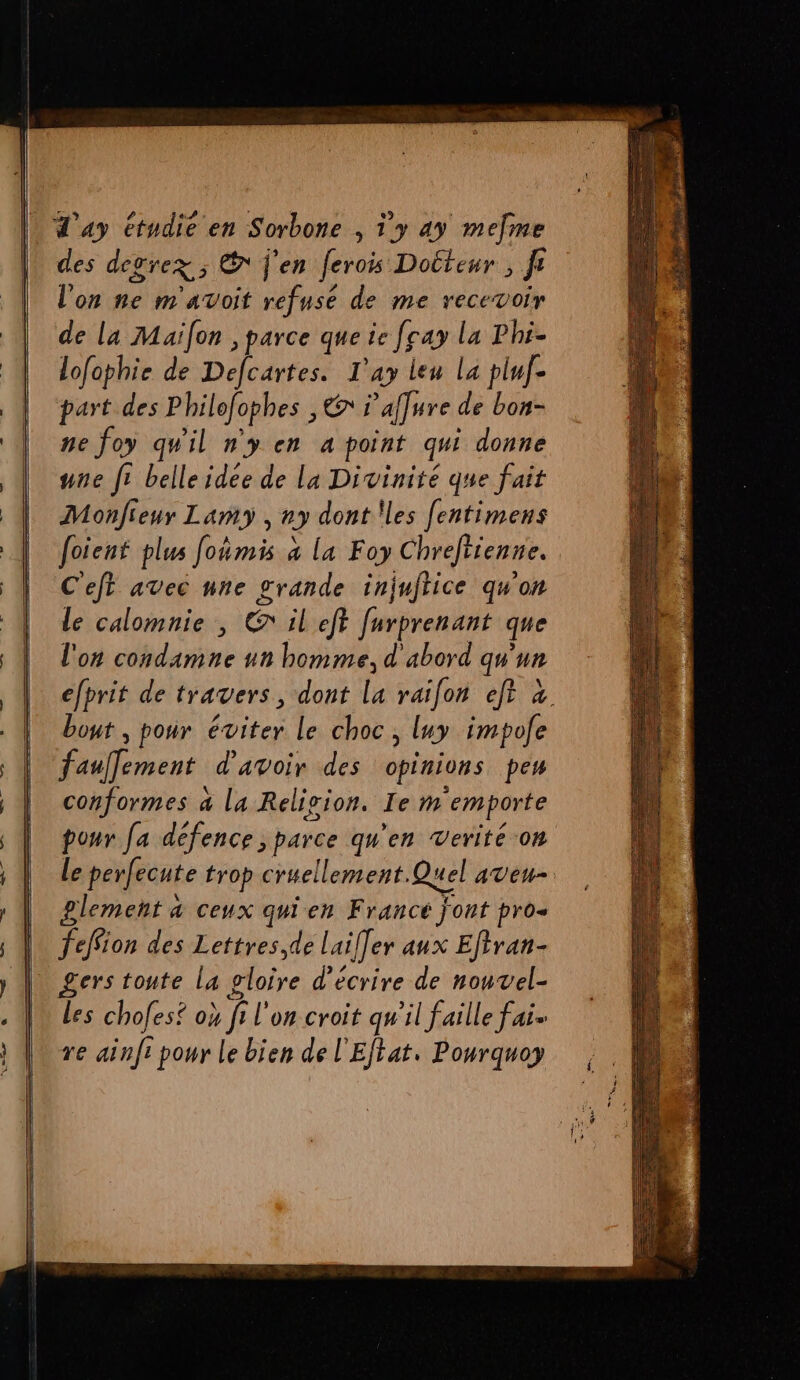 I'ay étudié en Sorbone , i'y ay meſme
des degrez ; & j'en ſerois Docteur , ſi
l'on ne m'avoit refusé de me recevoir
de la Maiſon , parce que ie ſçay la Phi-
loſophie de Deſcartes. I'ay leu la pluſ-
part des Philoſophes , & i'aſſure de bon-
ne foy qu'il n'y en a point qui donne
une ſi belle idée de la Divinité que fait
Monſieur Lamy , ny dont les ſentimens
ſoient plus ſoûmis à la Foy Chreſtienne.
C'eſt avec une grande injuſtice qu'on
le calomnie , & il eſt ſurprenant que
l'on condamne un homme, d'abord qu'un
eſprit de travers , dont la raiſon eſt à
bout , pour éviter le choc , luy impoſe
fauſſement d'avoir des opinions peu
conformes à la Religion. Ie m'emporte
pour ſa défence ; parce qu'en verité on
le perſecute trop cruellement. Quel aveu-
glement à ceux qui en France font pro-
feſſion des Lettres, de laiſſer aux Eſtran-
gers toute la gloire d'écrire de nouvel-
les choſes? où ſi l'on croit qu'il faille fai-
re ainſi pour le bien de l'Eſtat. Pourquoy